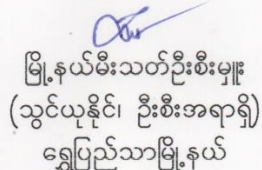 မြို့နယ်မီးသတ်ဦးစီးမှူး
(သွင်ယုနိုင်၊ ဦးစီးအရာရှိ)
ရွှေပြည်သာမြို့နယ်